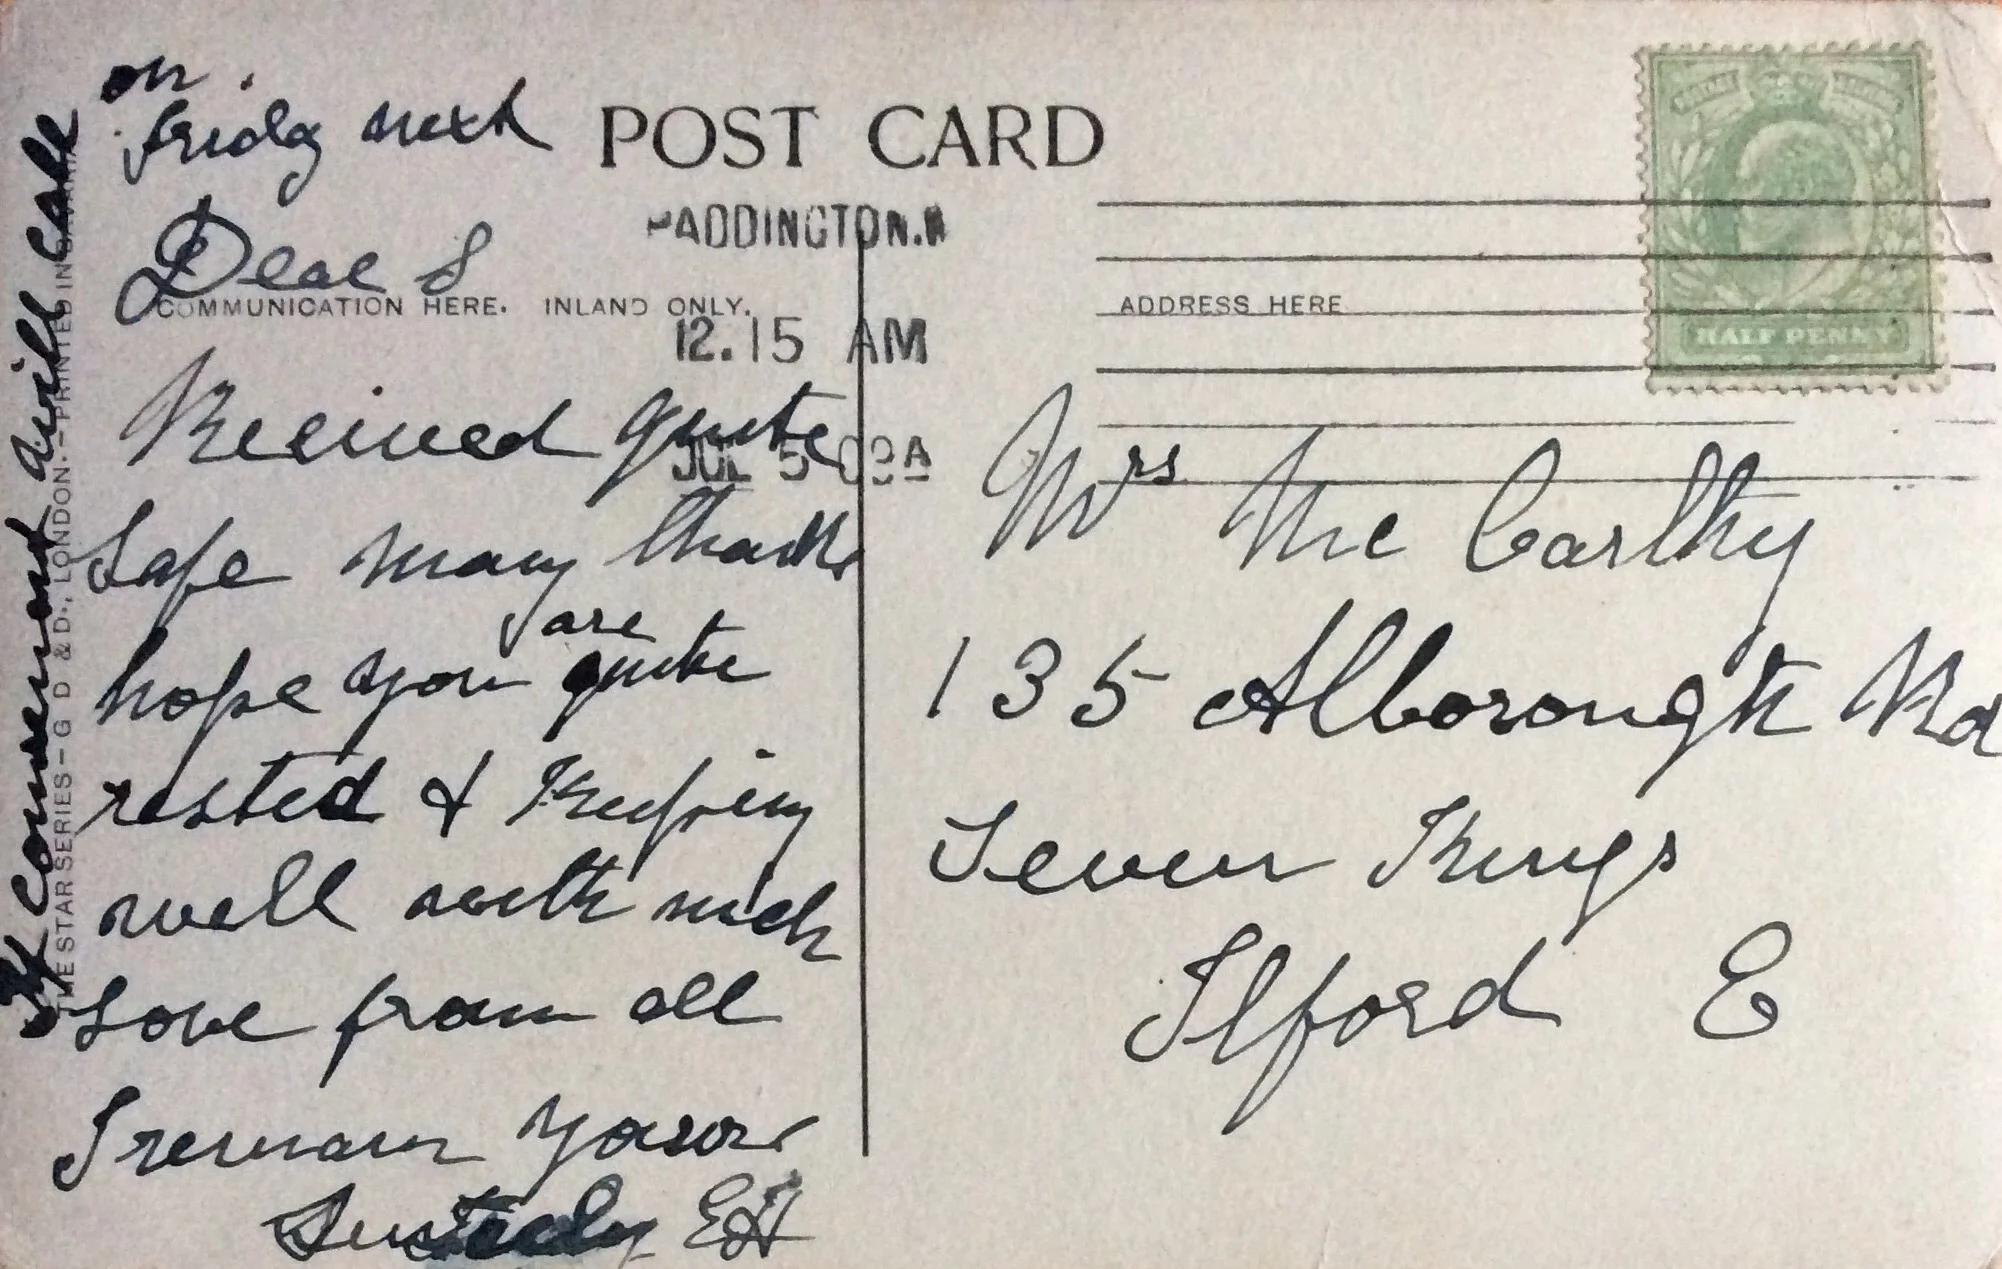 on
friday next
POST CARD
PADDINGTON.W
Dear S
COMMUNICATION HERE. INLAND ONLY.
12.15 AM
JUL 5 09A
Received quite
safe many thanks
hope you are quite
rested & Keeping
well with much
Love from all
I remain yours
EH
If convenient will call
THE STAR SERIES – G D & D., LONDON. – PRINTED IN BAVARIA
ADDRESS HERE
HALF PENNY
Mrs Mc Carthy
135 Alborough Rd
Seven Kings
Ilford E